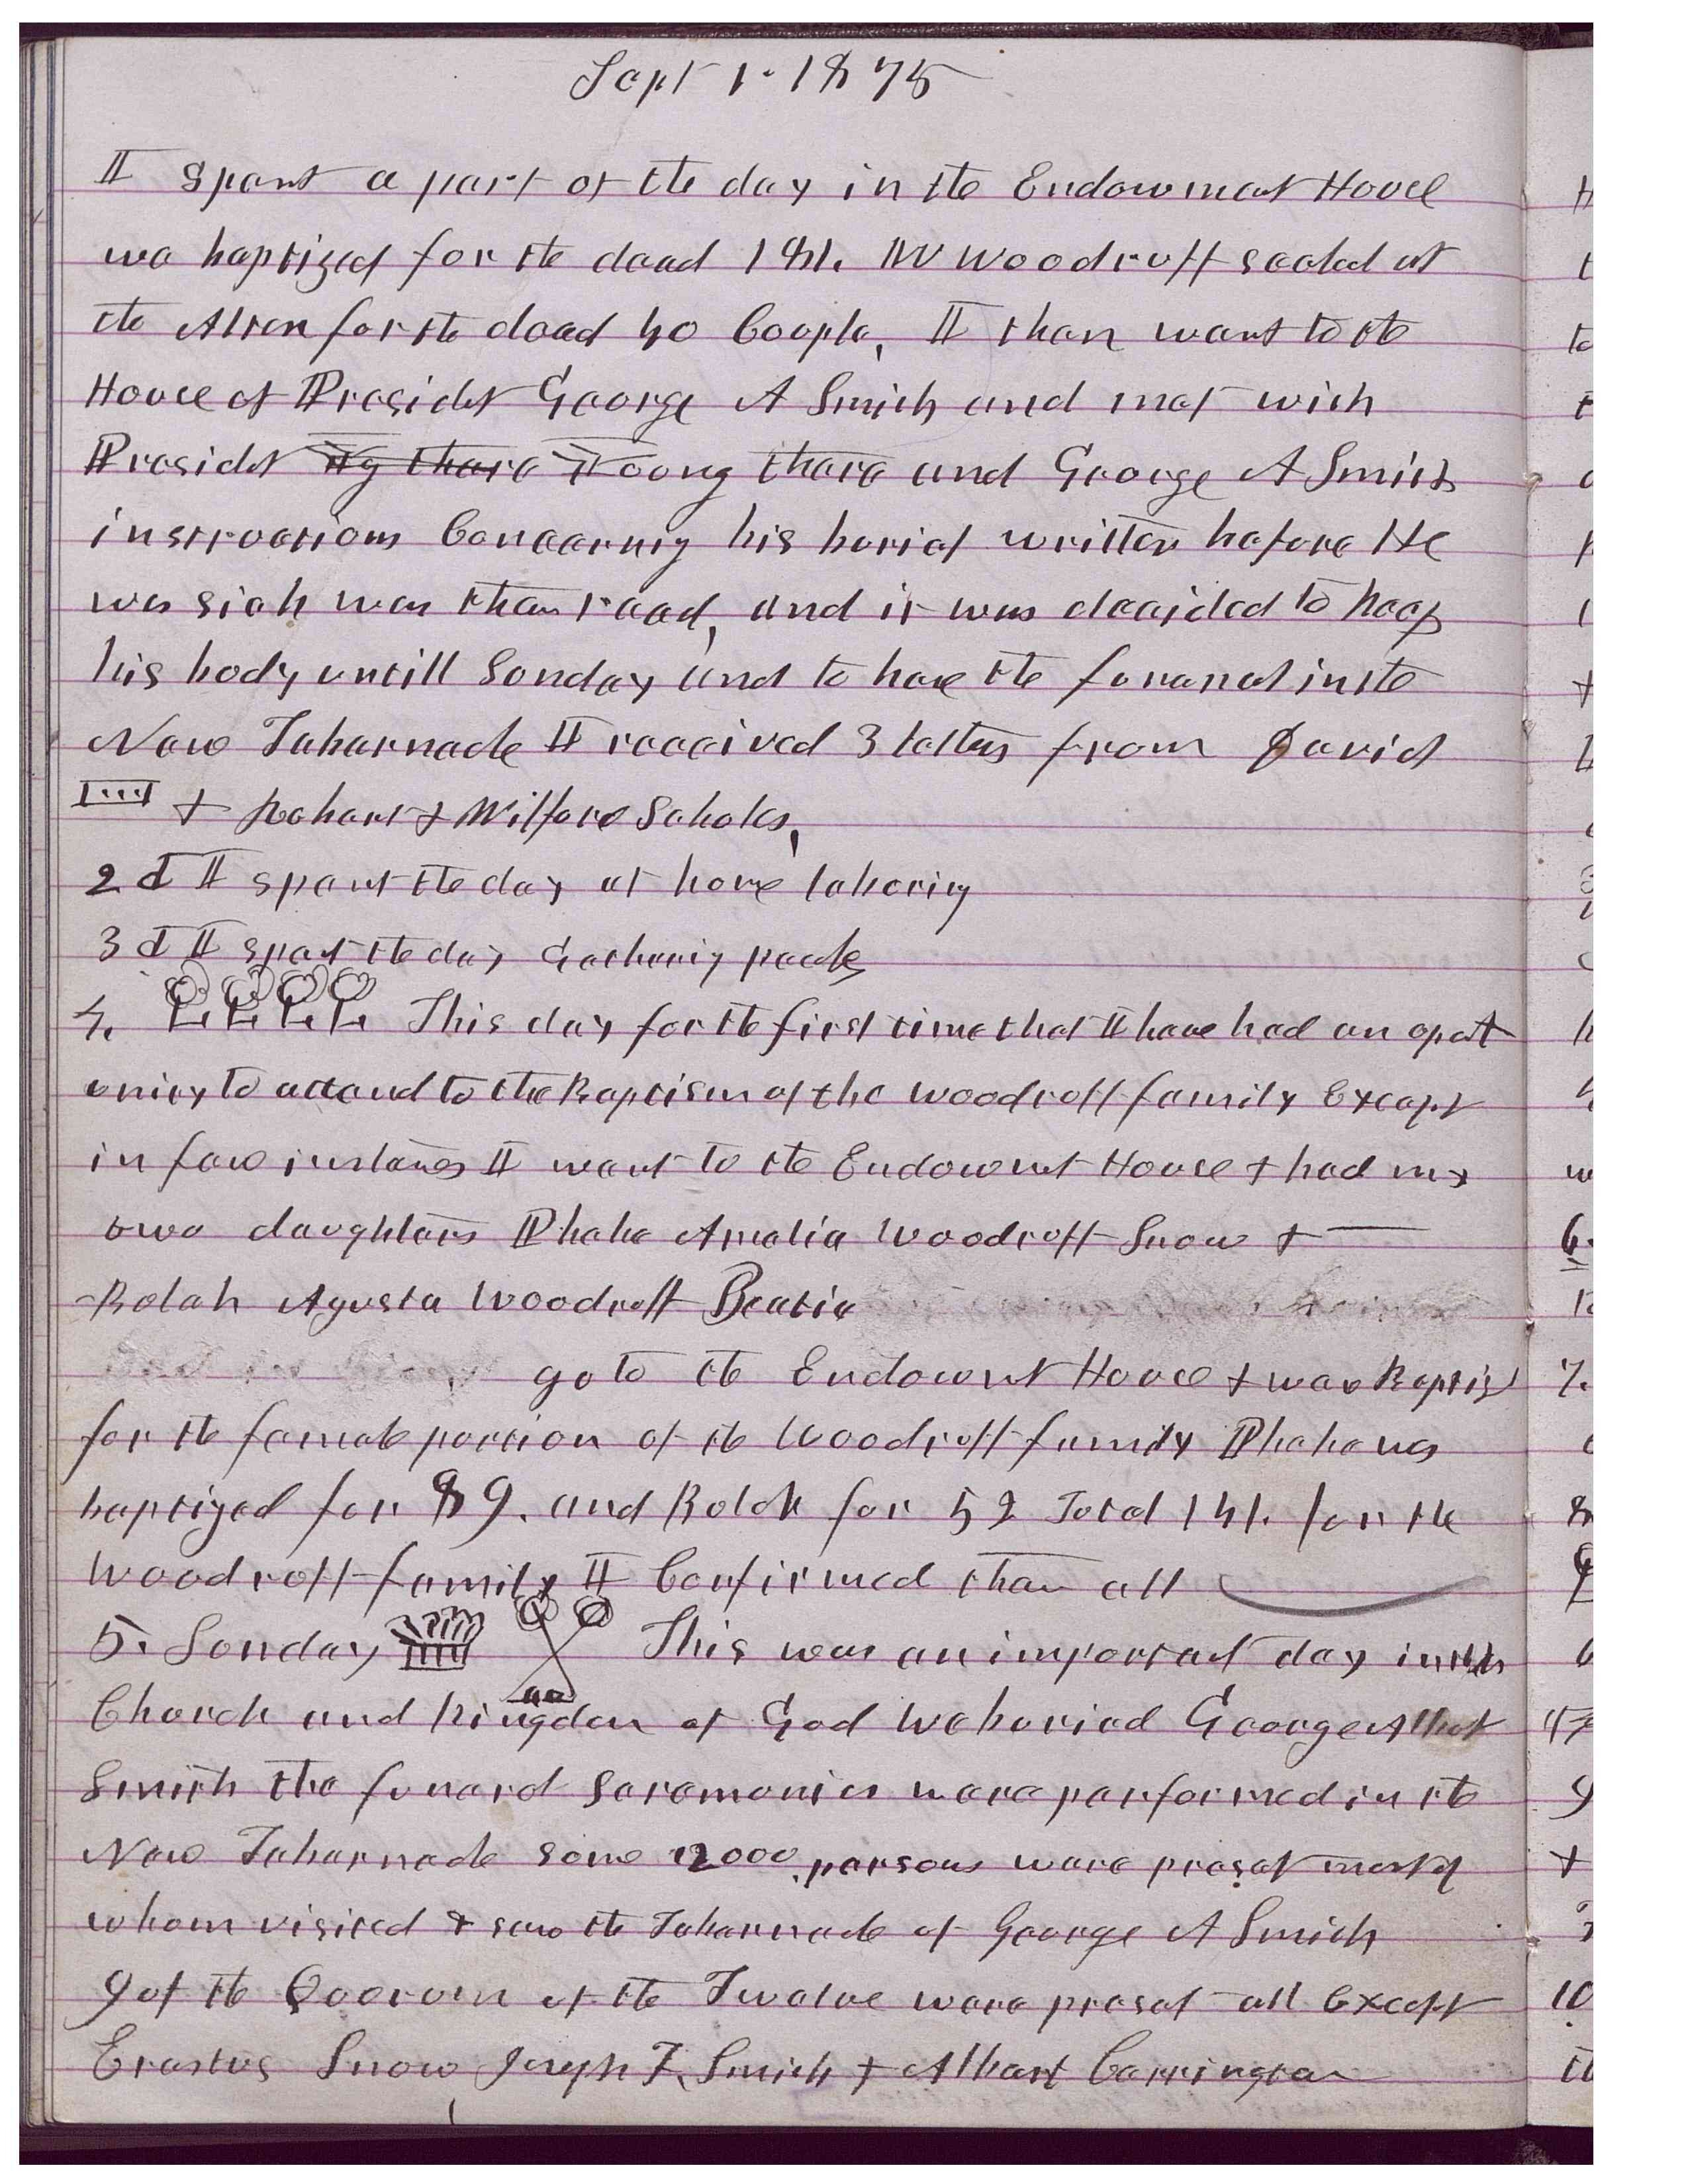 Sept 1. 1875
I spent a part of the day in the Endowment House
we baptized for the dead 181. W Woodruff sealed at
the Altar for the dead 40 Couple, I then went to the
House of Presidet George A Smith and met with
Presidet Yg there Young there and George A Smith
instructions Concerning his burial written before He
was sick was then read, and it was decided to keep
his body untill Sunday and to have the funeral in the
New Tabernacle I received 3 letters from David
+ Robert & Wilford Scholes,
2d I spent the day at home laboring
3d I spent the day Gathering peaches
4. This day for the first time that I have had an oport
unity to attend to the Baptism of the Woodruff family Except
in few instances I went to the Endowmet House & had my
two daughters Phebe Amelia Woodruff Snow &
Bulah Agusta Woodruff Beatie
go to the Endowmt House & was Baptized
for the female portion of the Woodruff family Phebe was
baptized for 89. and Bulah for 52 Total 141. for the
Woodruff family I Confirmed them all
5. Sunday This was an important day in the
Church and Kingdom of God We buried George Albert
Smith the funeral Saremonies were performed in the
New Tabernacle some 12000 persons were preset most of
whom visited & saw the Tabernacle of George A Smith
9 of the Quorum of the Twelve were preset all Except
Erastus Snow Joseph F. Smith & Albert Carrington